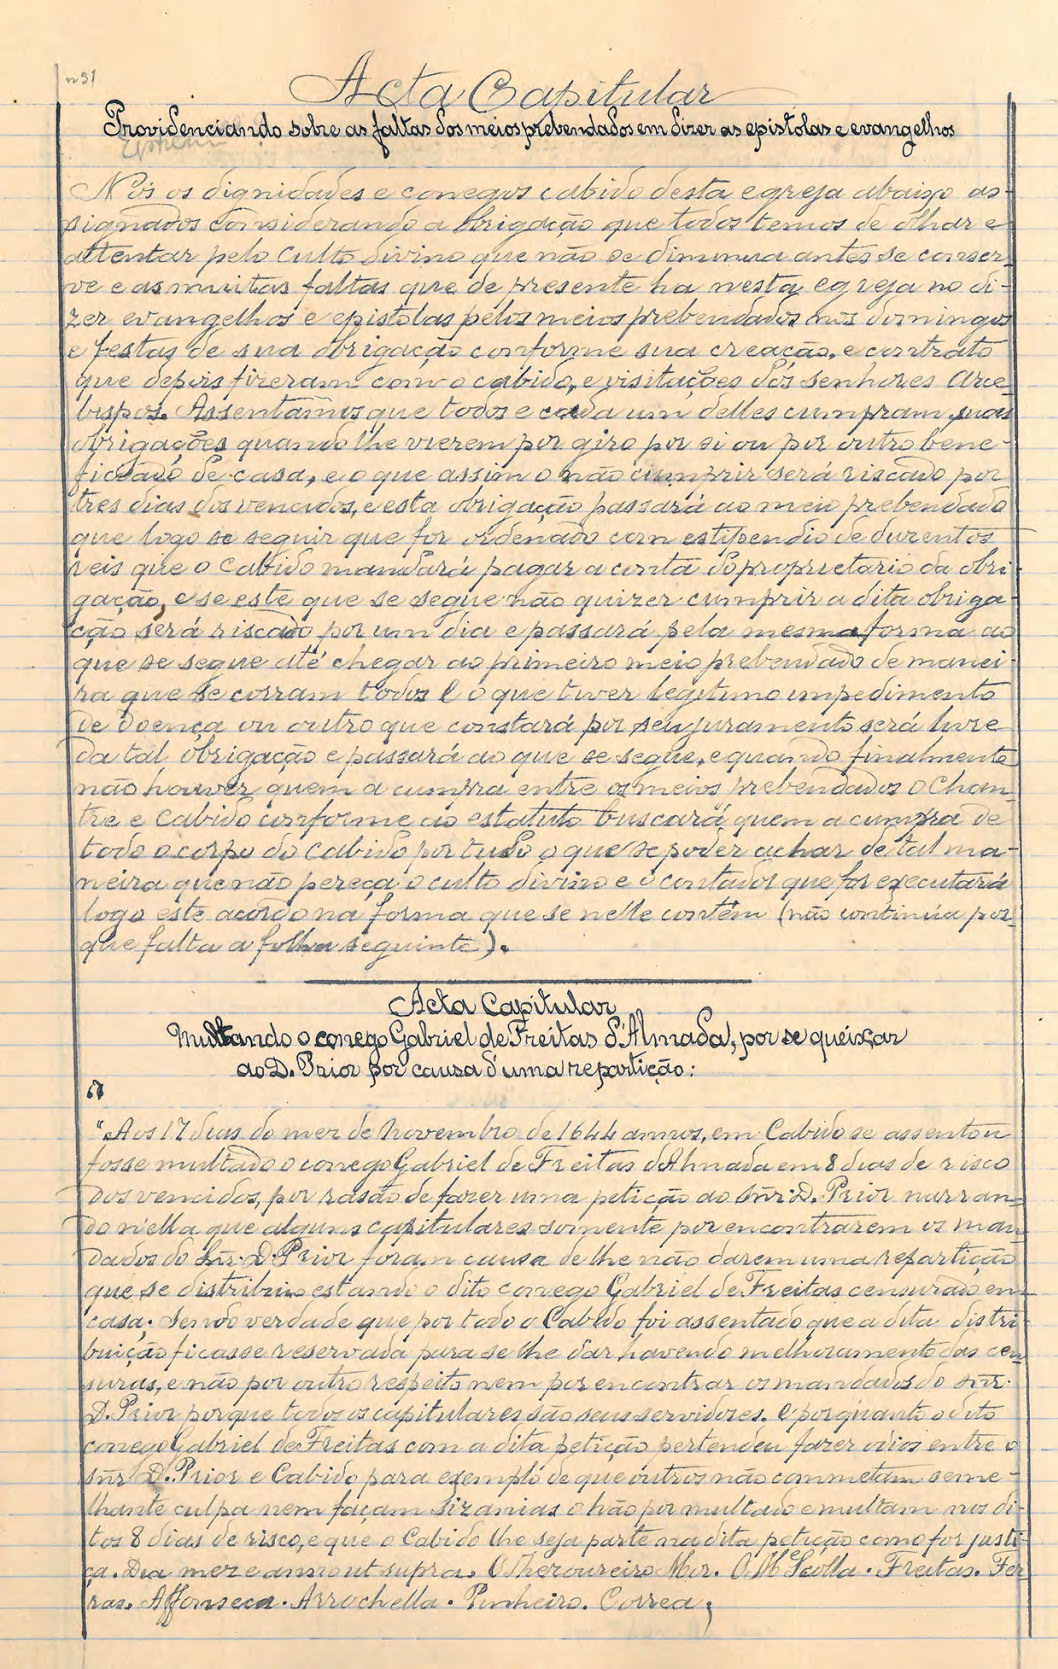 nº 31
Acta Capitular
Providenciando sobre as faltas dos meios prebendados em dizer as epistolas e evangelhos
Nós os dignidades e conegos cabido desta egreja abaixo as-
signados considerando a obrigação que todos temos de olhar e
attentar pelo culto divino que não se diminua antes se conser-
ve e as muitas faltas que de presente ha nesta egreja no di-
zer evangelhos e epistolas pelos meios prebendados nos domingos
e festas de sua obrigação conforme sua creação, e contrato
que depois fizeram com o cabido, e visitações dos senhores Arce-
bispos. Assentamos que todos e cada um delles cumpram suas
obrigações quando lhe vierem por giro por si ou por outro bene-
ficiado de casa, e o que assim o não cumprir será riscado por
tres dias dos vencidos, e esta obrigação passará ao meio prebendado
que logo se seguir que for ordenado com estipendio de duzentos
reis que o Cabido mandará pagar a conta do proprietario da obri-
gação, e se este que se segue não quizer cumprir a dita obriga-
ção será riscado por um dia e passará pela mesma forma ao
que se segue até chegar ao primeiro meio prebendado de manei-
ra que se corram todos e o que tiver legitimo impedimento
de doença ou outro que constará por seu juramento será livre
da tal obrigação e passará ao que se segue, e quando finalmente
não houver quem a cumpra entre os meios prebendados o Chan-
tre e Cabido conforme ao estatuto buscará quem a cumpra de
todo o corpo do Cabido por tudo o que se poder achar de tal ma-
neira que não pereça o culto divino e o contador que for executará
logo este acordo na forma que se nelle contém (não continúa por-
que falta a folha seguinte).
Acta Capitular
Multando o conego Gabriel de Freitas d'Almada, por se queixar
ao D. Prior por causa d'uma repartição:
"Aos 17 dias do mez de Novembro de 1644 annos, em Cabido se assentou
fosse multado o conego Gabriel de Freitas d'Almada em 8 dias de risco
dos vencidos, por rasão de fazer uma petição ao Snr. D. Prior narran-
do n'ella que alguns capitulares somente por encontrarem os man-
dados do Snr. D. Prior foram causa de lhe não darem uma repartição
que se distribuiu estando o dito conego Gabriel de Freitas censurado em
casa; sendo verdade que por todo o Cabido foi assentado que a dita distri-
buição ficasse reservada para se lhe dar havendo melhoramento das cen-
suras, e não por outro respeito nem por encontrar os mandados do Snr.
D. Prior porque todos os capitulares são seus servidores. E porquanto o dito
conego Gabriel de Freitas com a dita petição pertendeu fazer odios entre o
Snr. D. Prior e Cabido para exemplo de que outros não commetam seme-
lhante culpa nem façam sizanias o hão por multado e multam nos di-
tos 8 dias de risco, e que o Cabido lhe seja parte na dita petição como for justi-
ça. Dia mez e anno ut supra. O Thezoureiro Mor. O Freitas. Fer-
raz. Affonseca. Arrochella. Pinheiro. Correa;